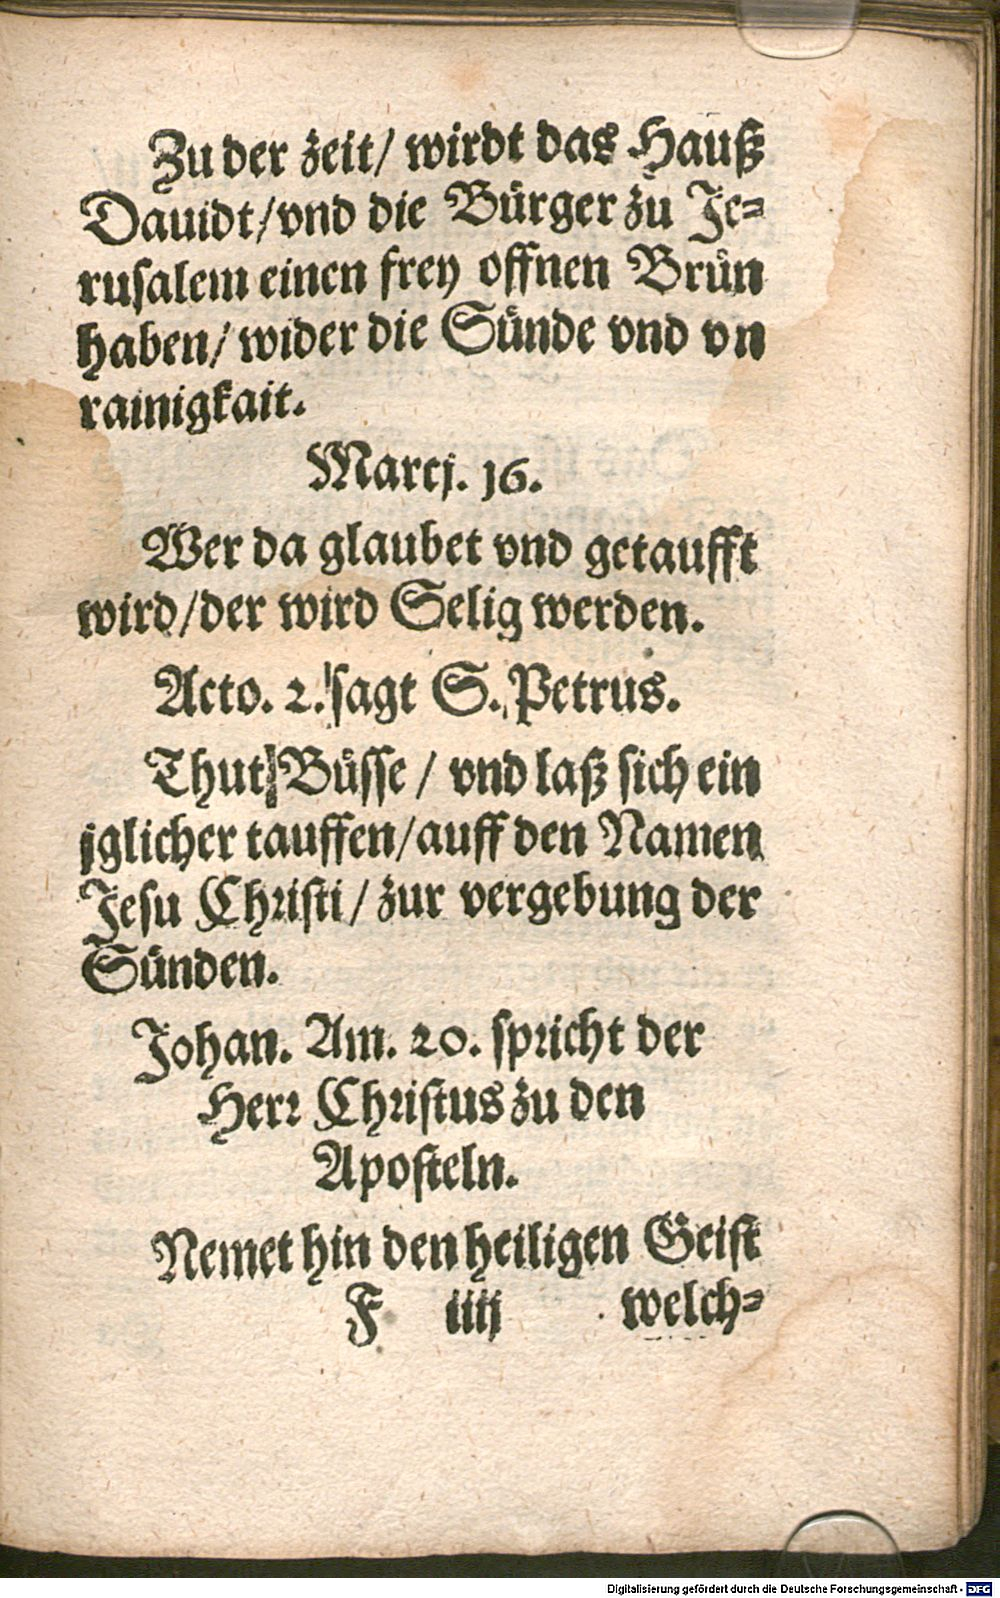 Zu der zeit/ wirdt das Hauß
Dauidt/vnd die Bürger zu Je-
rusalem einen frey offnen Brün
haben/ wider die Sünde vnd vn
rainigkait.
Marcj. 16.
Wer da glaubet vnd getaufft
wird/der wird Selig werden.
Acto. 2. sagt S. Petrus.
Thut Büsse / vnd laß sich ein
jglicher tauffen/auff den Namen
Jesu Christi / zur vergebung der
Sünden.
Johan. Am. 20. spricht der
Herr Christus zu den
Aposteln.
Nemet hin den heiligen Geist
F iiij welch-
Digitalisierung gefördert durch die Deutsche Forschungsgemeinschaft - DFG